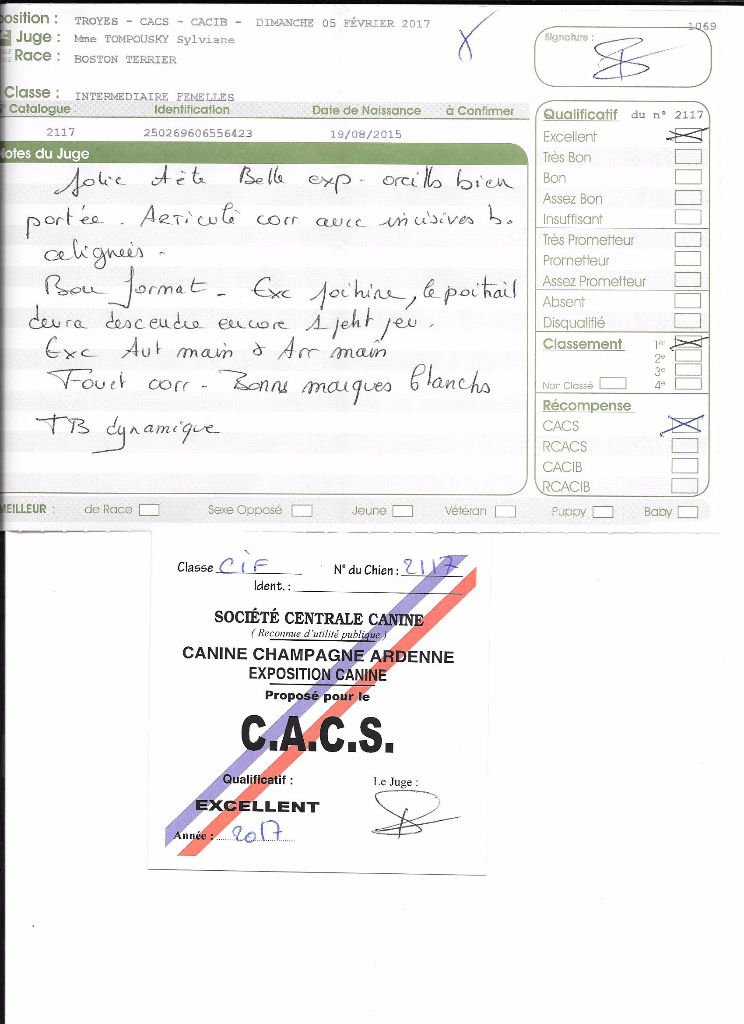 osition : TROYES - CACS - CACIB - DIMANCHE 05 FÉVRIER 2017
1069
Juge : Mme TOMPOUSKY Sylviane
Race : BOSTON TERRIER
Signature :
Classe : INTERMEDIAIRE FEMELLES
Catalogue Identification Date de Naissance à Confirmer
2117 250269606556423 19/08/2015
otes du Juge
Jolie tête Belle exp - oreills bien
portée . Articulé corr avec incisives b.
alignées -
Bon format - Exc poitrine, le poitrail
devra descendre encore 1 petit peu .
Exc Aut main & Arr main
Fouet corr - Bonns marques blanchs
TB dynamique
Qualificatif du n° 2117
Excellent
Très Bon
Bon
Assez Bon
Insuffisant
Très Prometteur
Prometteur
Assez Prometteur
Absent
Disqualifié
Classement 1er
2e
3e
Non Classé 4e
Récompense
CACS
RCACS
CACIB
RCACIB
MEILLEUR : de Race Sexe Opposé Jeune Vétéran Puppy Baby
Classe CIF N° du Chien : 2117
Ident. :
SOCIÉTÉ CENTRALE CANINE
( Reconnue d'utilité publique )
CANINE CHAMPAGNE ARDENNE
EXPOSITION CANINE
Proposé pour le
C.A.C.S.
Qualificatif : Le Juge :
EXCELLENT
Année : 2017